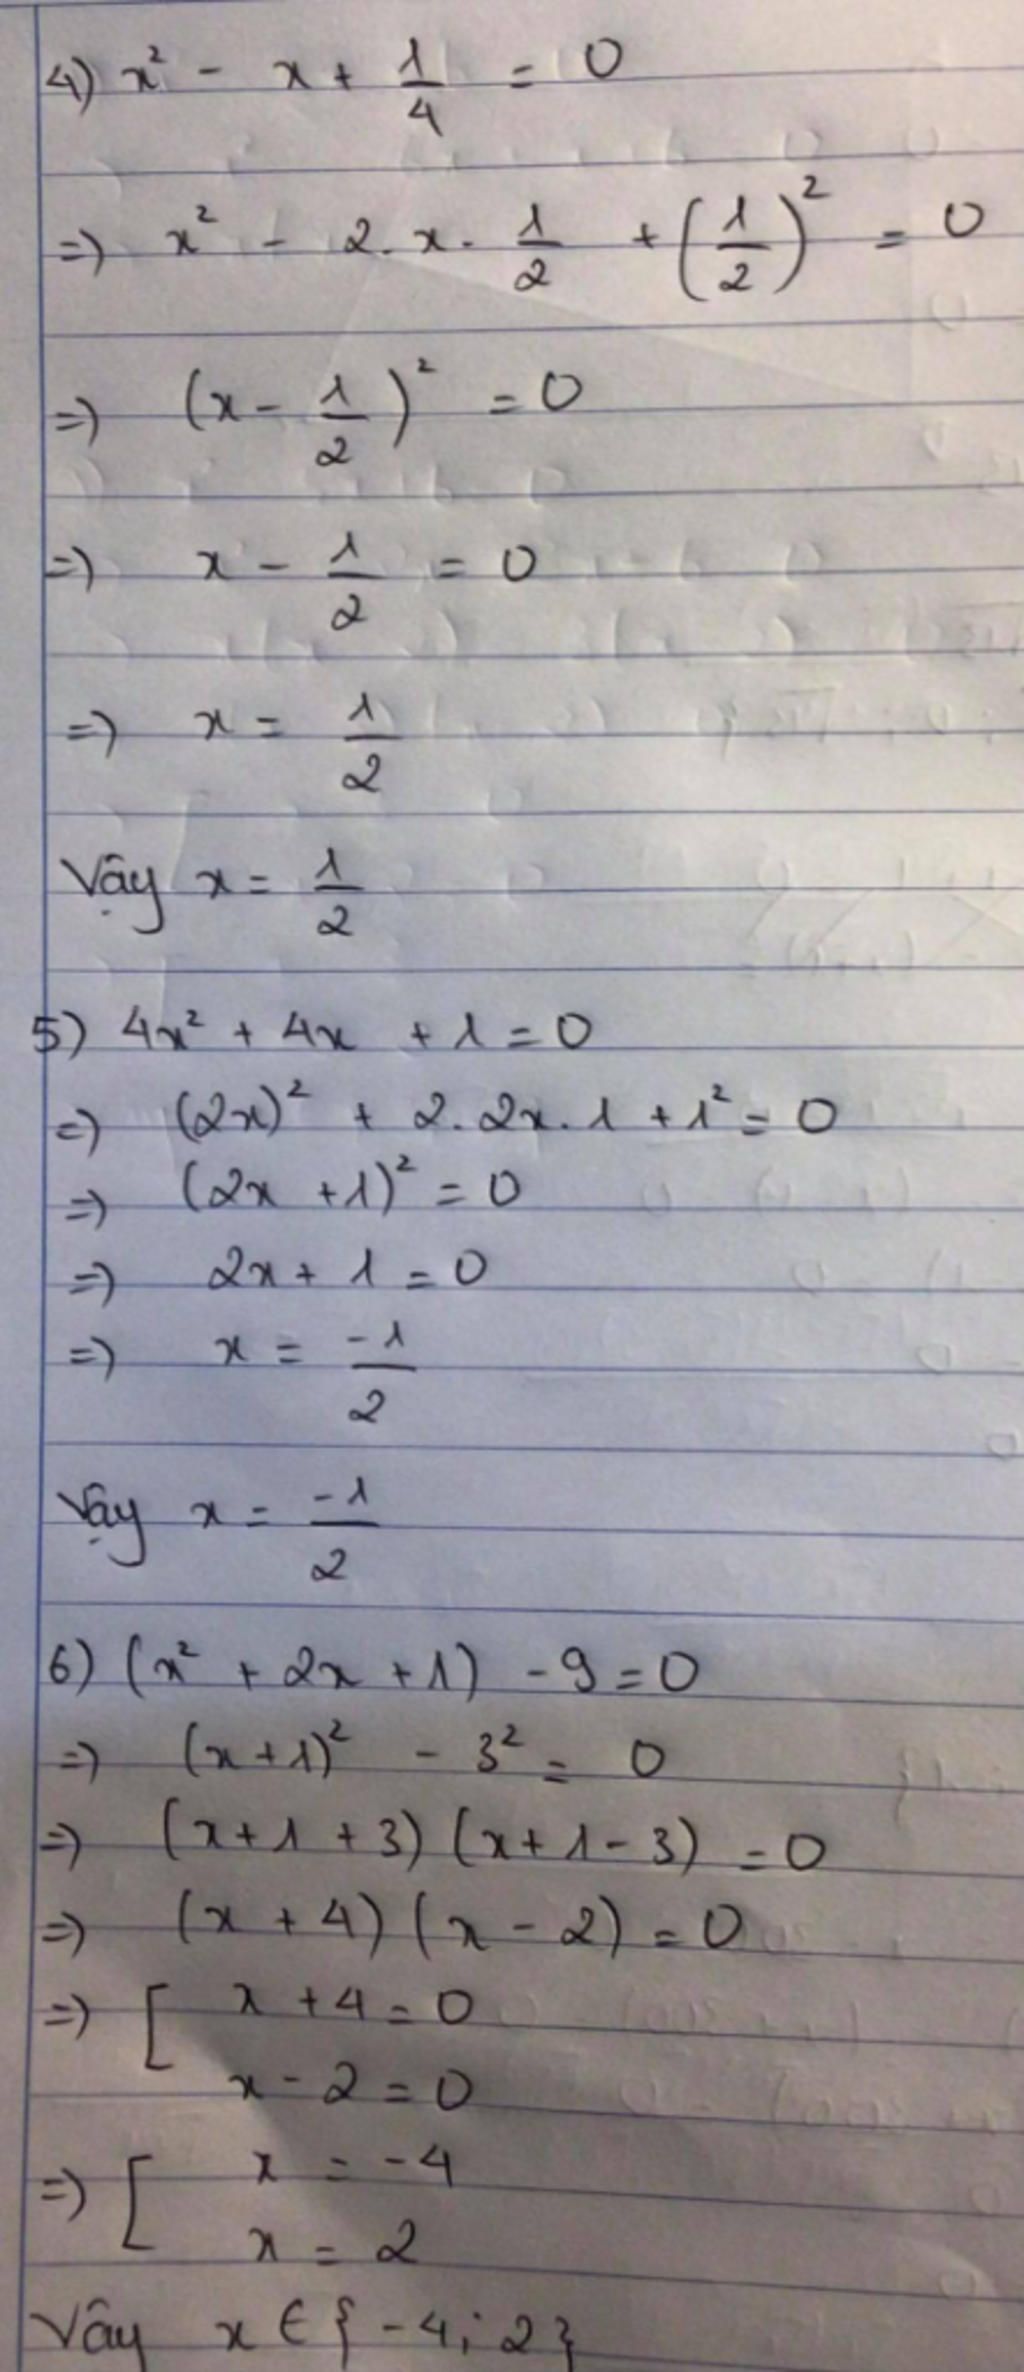 4) x² - x + 1/4 = 0
=) x² - 2. x. 1/2 + (1/2)² = 0
=) (x - 1/2)² = 0
=) x - 1/2 = 0
=) x = 1/2
Vậy x = 1/2
5) 4x² + 4x + 1 = 0
=) (2x)² + 2. 2x. 1 + 1² = 0
=) (2x + 1)² = 0
=) 2x + 1 = 0
=) x = -1/2
Vậy x = -1/2
6) (x² + 2x + 1) - 9 = 0
=) (x + 1)² - 3² = 0
=) (x + 1 + 3) (x + 1 - 3) = 0
=) (x + 4) (x - 2) = 0
=) [ x + 4 = 0
x - 2 = 0
=) [ x = -4
x = 2
Vây x ∈ {-4; 2}